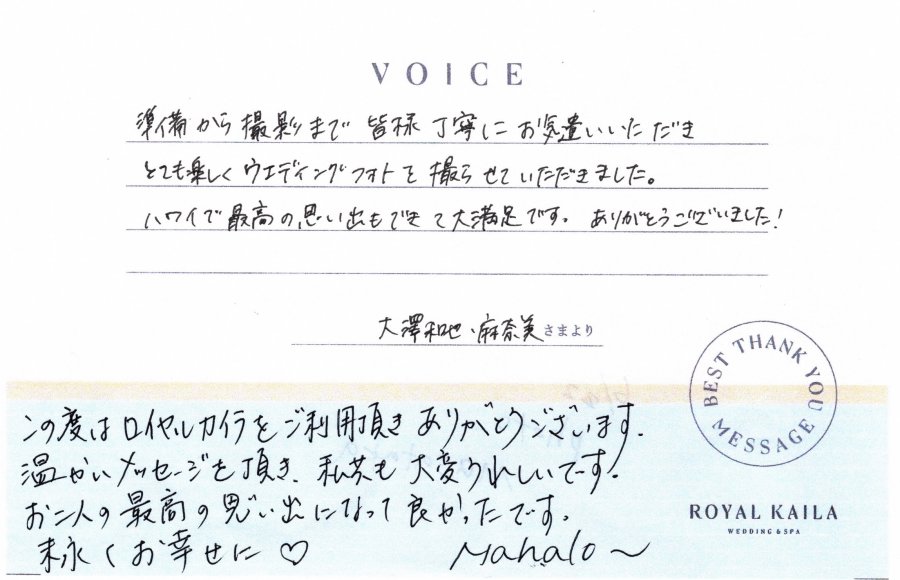 VOICE
準備から撮影まで 皆様 丁寧に お気遣いいただき
とても楽しく ウエディングフォトを 撮らせていただきました。
ハワイで 最高の思い出もできて大満足です。 ありがとうございました!
大澤和也・麻奈美さまより
BEST THANK YOU MESSAGE
この度は ロイヤルカイラを ご利用頂き ありがとうございます.
温かい メッセージを 頂き、私共も 大変うれしいでーす!
お二人の 最高の 思い出になって 良かったです。
末永くお幸せに ♡ Mahalo~
ROYAL KAILA
WEDDING & SPA